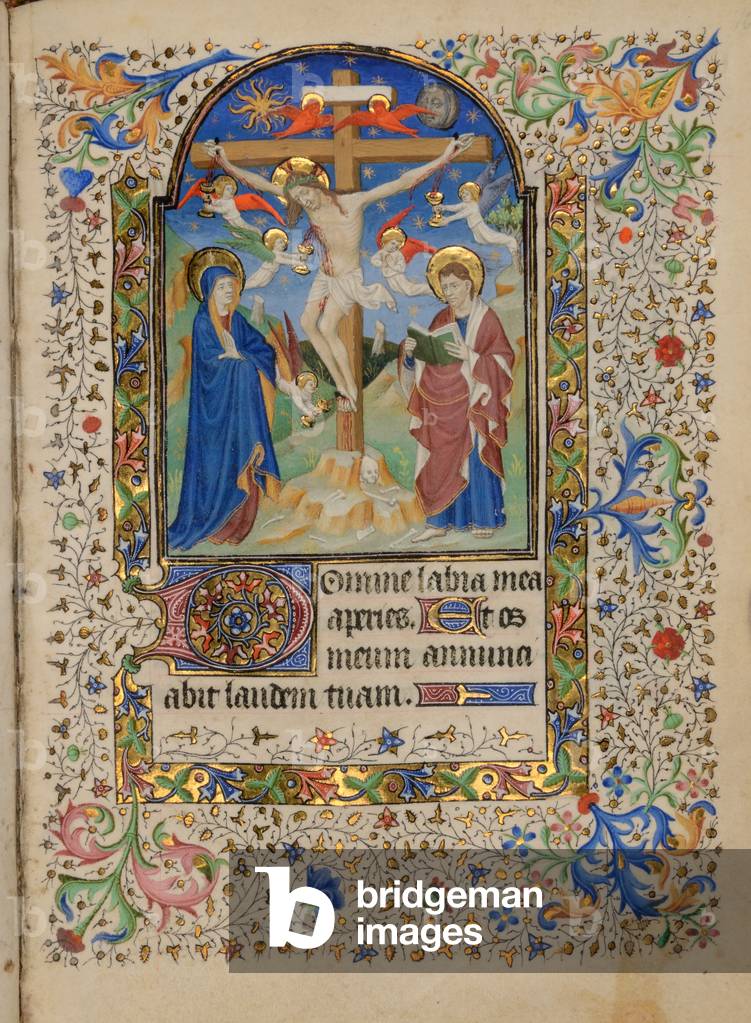 Domine labia mea
aperies. Et os
meum annunci
abit laudem tuam.
b bridgeman
images